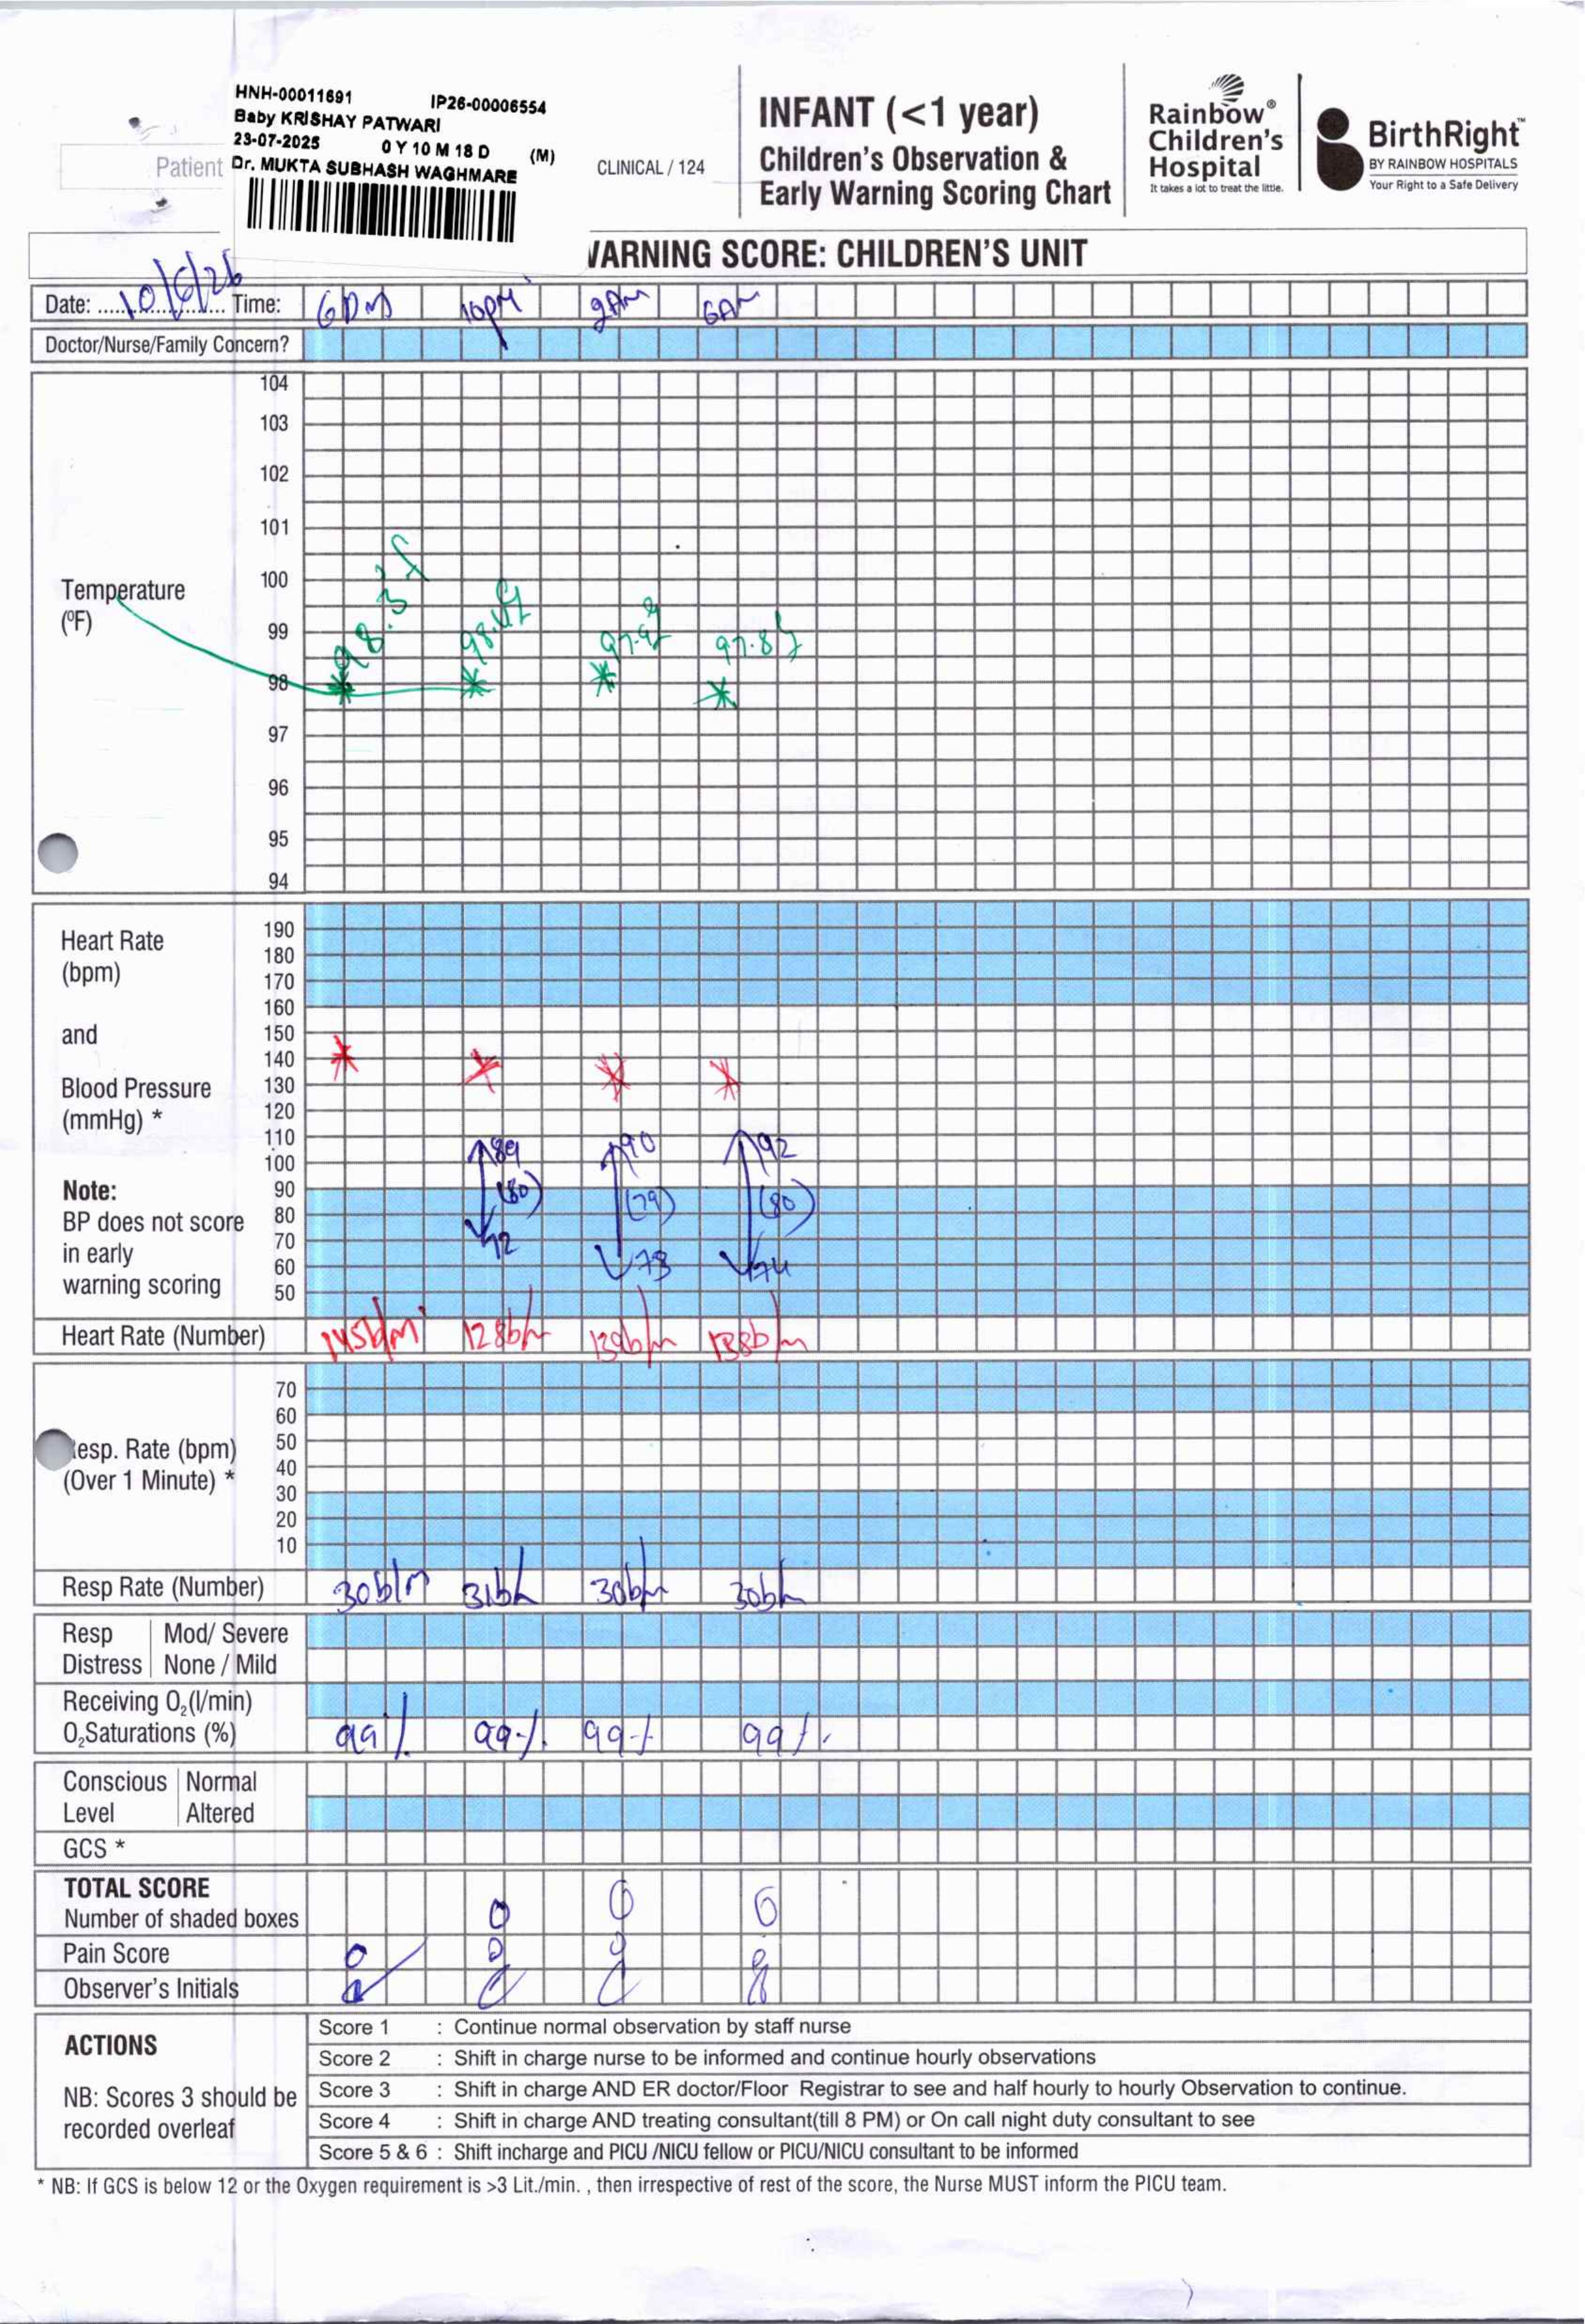 HNH-00011691 IP26-00006554
Baby KRISHAY PATWARI
23-07-2025 0 Y 10 M 18 D (M)
Dr. MUKTA SUBHASH WAGHMARE
Patient
CLINICAL / 124
INFANT (<1 year)
Children's Observation &
Early Warning Scoring Chart
Rainbow®
Children's
Hospital
It takes a lot to treat the little.
BirthRight™
BY RAINBOW HOSPITALS
Your Right to a Safe Delivery
WARNING SCORE: CHILDREN'S UNIT
Date: 10/6/26 Time: 6PM 10PM 2AM 6AM
Doctor/Nurse/Family Concern?
Temperature
(ºF)
104
103
102
101
100
99
98
97
96
95
94
98.3f 98.4f 97.9f 97.8f
Heart Rate
(bpm)
and
Blood Pressure
(mmHg) *
Note:
BP does not score
in early
warning scoring
190
180
170
160
150
140
130
120
110
100
90
80
70
60
50
89 90 92
(80) (79) (80)
72 73 74
Heart Rate (Number) 145b/m 128b/m 139b/m 138b/m
esp. Rate (bpm)
(Over 1 Minute) *
70
60
50
40
30
20
10
Resp Rate (Number) 30b/m 31b/m 30b/m 30b/m
Resp Mod/ Severe
Distress None / Mild
Receiving O₂(l/min)
O₂Saturations (%) 99% 99% 99% 99%
Conscious Normal
Level Altered
GCS *
TOTAL SCORE
Number of shaded boxes 0 0 0
Pain Score 0 0 0 0
Observer's Initials
ACTIONS
NB: Scores 3 should be
recorded overleaf
Score 1 : Continue normal observation by staff nurse
Score 2 : Shift in charge nurse to be informed and continue hourly observations
Score 3 : Shift in charge AND ER doctor/Floor Registrar to see and half hourly to hourly Observation to continue.
Score 4 : Shift in charge AND treating consultant(till 8 PM) or On call night duty consultant to see
Score 5 & 6 : Shift incharge and PICU /NICU fellow or PICU/NICU consultant to be informed
* NB: If GCS is below 12 or the Oxygen requirement is >3 Lit./min. , then irrespective of rest of the score, the Nurse MUST inform the PICU team.